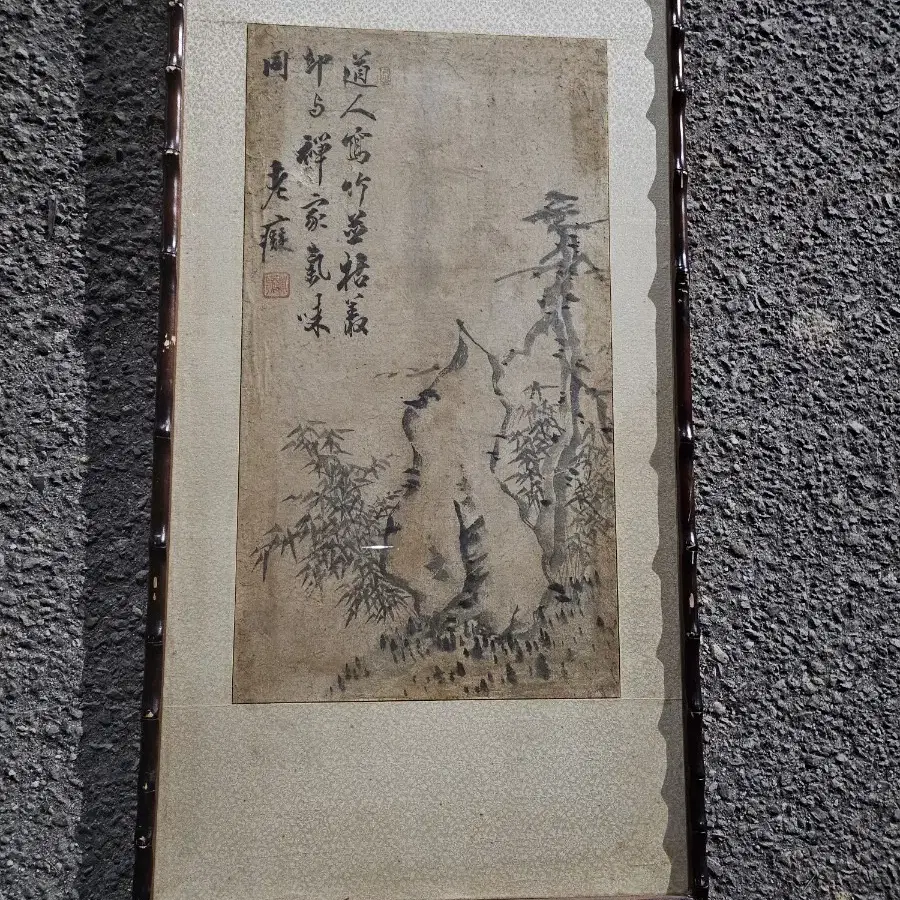 道人寫竹並枯叢
却与禪家氣味
同 老癡